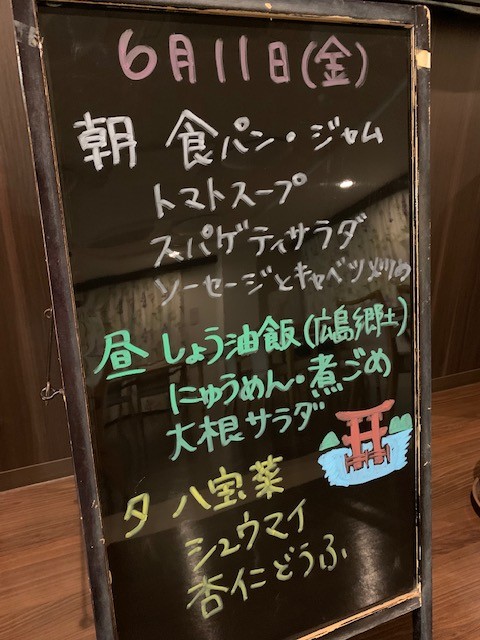 6月11日(金)
朝 食パン・ジャム
トマトスープ
スパゲティサラダ
ソーセージとキャベツ炒め
昼 しょう油飯(広島郷土)
にゅうめん・煮ごめ
大根サラダ
夕 八宝菜
シュウマイ
杏仁どうふ